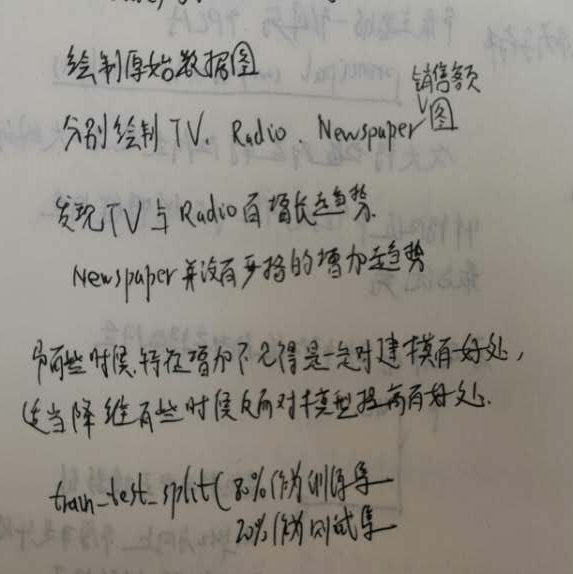 绘制原始数据图
销售额
分别绘制 TV、Radio、Newspaper图
发现TV与Radio有增长趋势.
Newspaper并没有严格的增加趋势
有些时候,特征增加不见得是一定对建模有好处,
适当降维有些时候反而对模型提高有好处.
train_test_split( 80%作为训练集
20%作为测试集